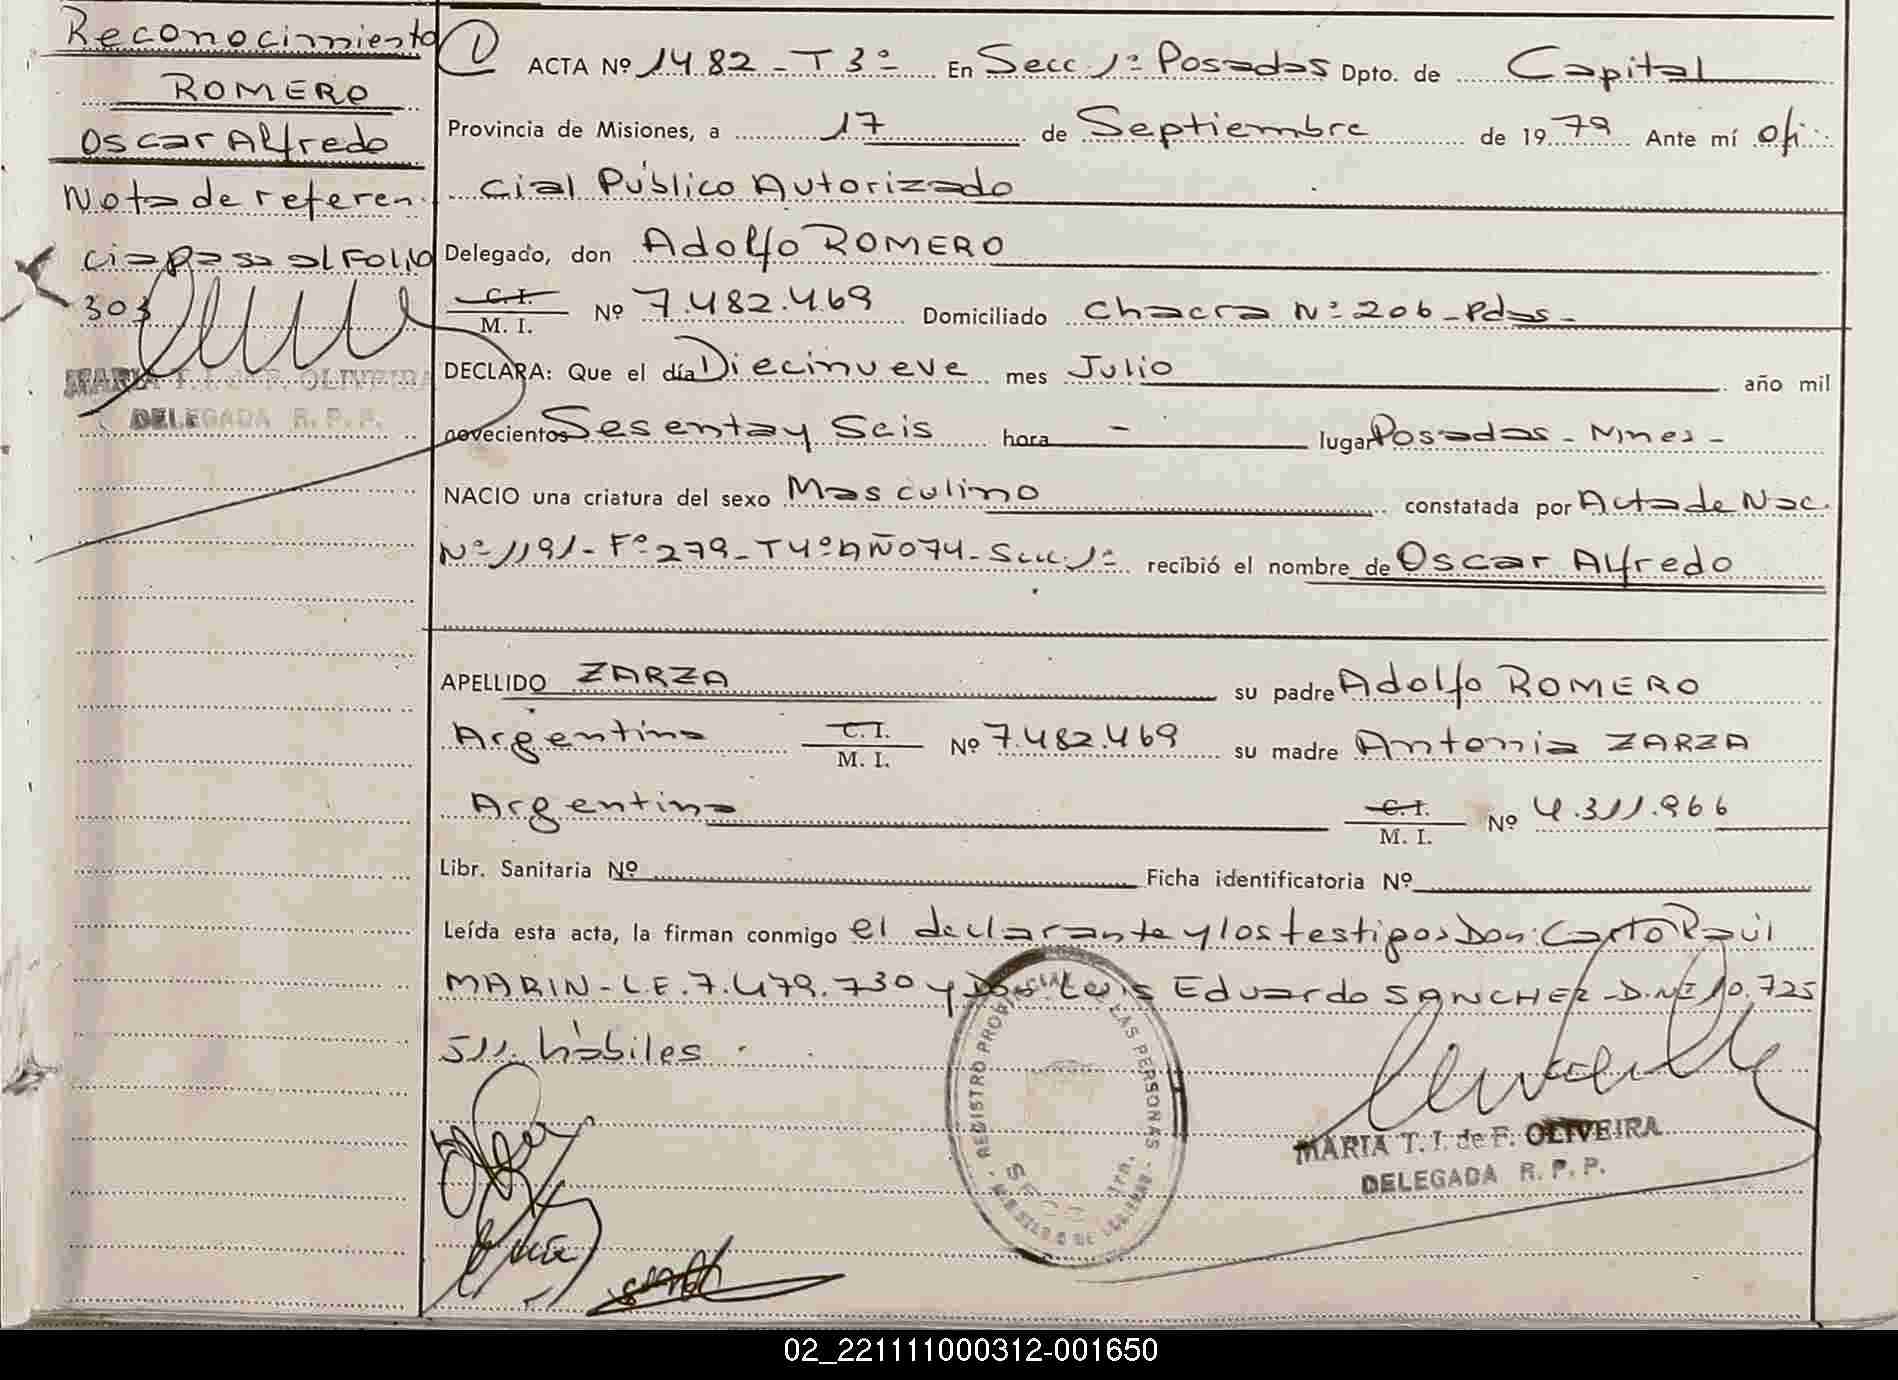 Reconocimiento
ROMERO
Oscar Alfredo
Nota de referen
cia pasa al Folio
303
MARIA T. I. de F. OLIVEIRA
DELEGADA R. P. P.
1
ACTA Nº 1482 - T 3º - En Secc 1ª Posadas Dpto. de Capital
Provincia de Misiones, a 17 de Septiembre de 1979 Ante mí Ofi
cial Público Autorizado
Delegado, don Adolfo ROMERO
C. I.
M. I. Nº 7.482.469 Domiciliado Chacra Nº 206 - Pdas -
DECLARA: Que el día Diecinueve mes Julio año mil
novecientos Sesenta y Seis hora - lugar Posadas - Mnes -
NACIO una criatura del sexo Masculino constatada por Acta de Nac.
Nº 1191 - Fº 279 - T4º AÑO 74 - Secc. 1ª recibió el nombre de Oscar Alfredo
APELLIDO ZARZA su padre Adolfo ROMERO
Argentino C. I.
M. I. Nº 7.482.469 su madre Antonia ZARZA
Argentina C. I.
M. I. Nº 4.311.966
Libr. Sanitaria Nº Ficha identificatoria Nº
Leída esta acta, la firman conmigo el declarante y los testigos Don: Carlo Raúl
MARIN - L.E. 7.479.730 y Don Luis Eduardo SANCHEZ - D.NI 10.725
511. hábiles
REGISTRO PROVINCIAL LAS PERSONAS
SECC 1ra.
MARIA T. I. de F. OLIVEIRA
DELEGADA R. P. P.
02_221111000312-001650